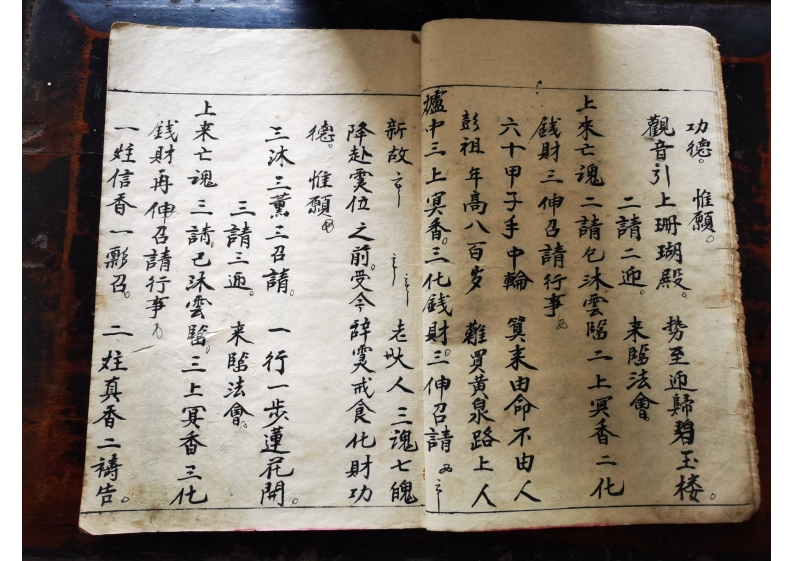 功德。惟願。
觀音引上珊瑚殿。勢至迎歸碧玉楼。
二請二迎。来臨法會。
上来亡魂二請乞沐雲臨二上冥香二化
錢財三伸召請行事
六十甲子手中輪 算来由命不由人
彭祖年高八百岁 難買黄泉路上人
爐中三上冥香。三化錢財。三伸召請
新故 老 人三魂七魄
降赴霊位之前。受今 霊戒食化財功
德。惟願。
三沐三薰三召請。一行一步蓮花開。
三請三迎。来臨法會。
上来亡魂三請。已沐雲臨。三上冥香三化
錢財再伸召請行事
一炷信香一 召。二炷真香二禱告。